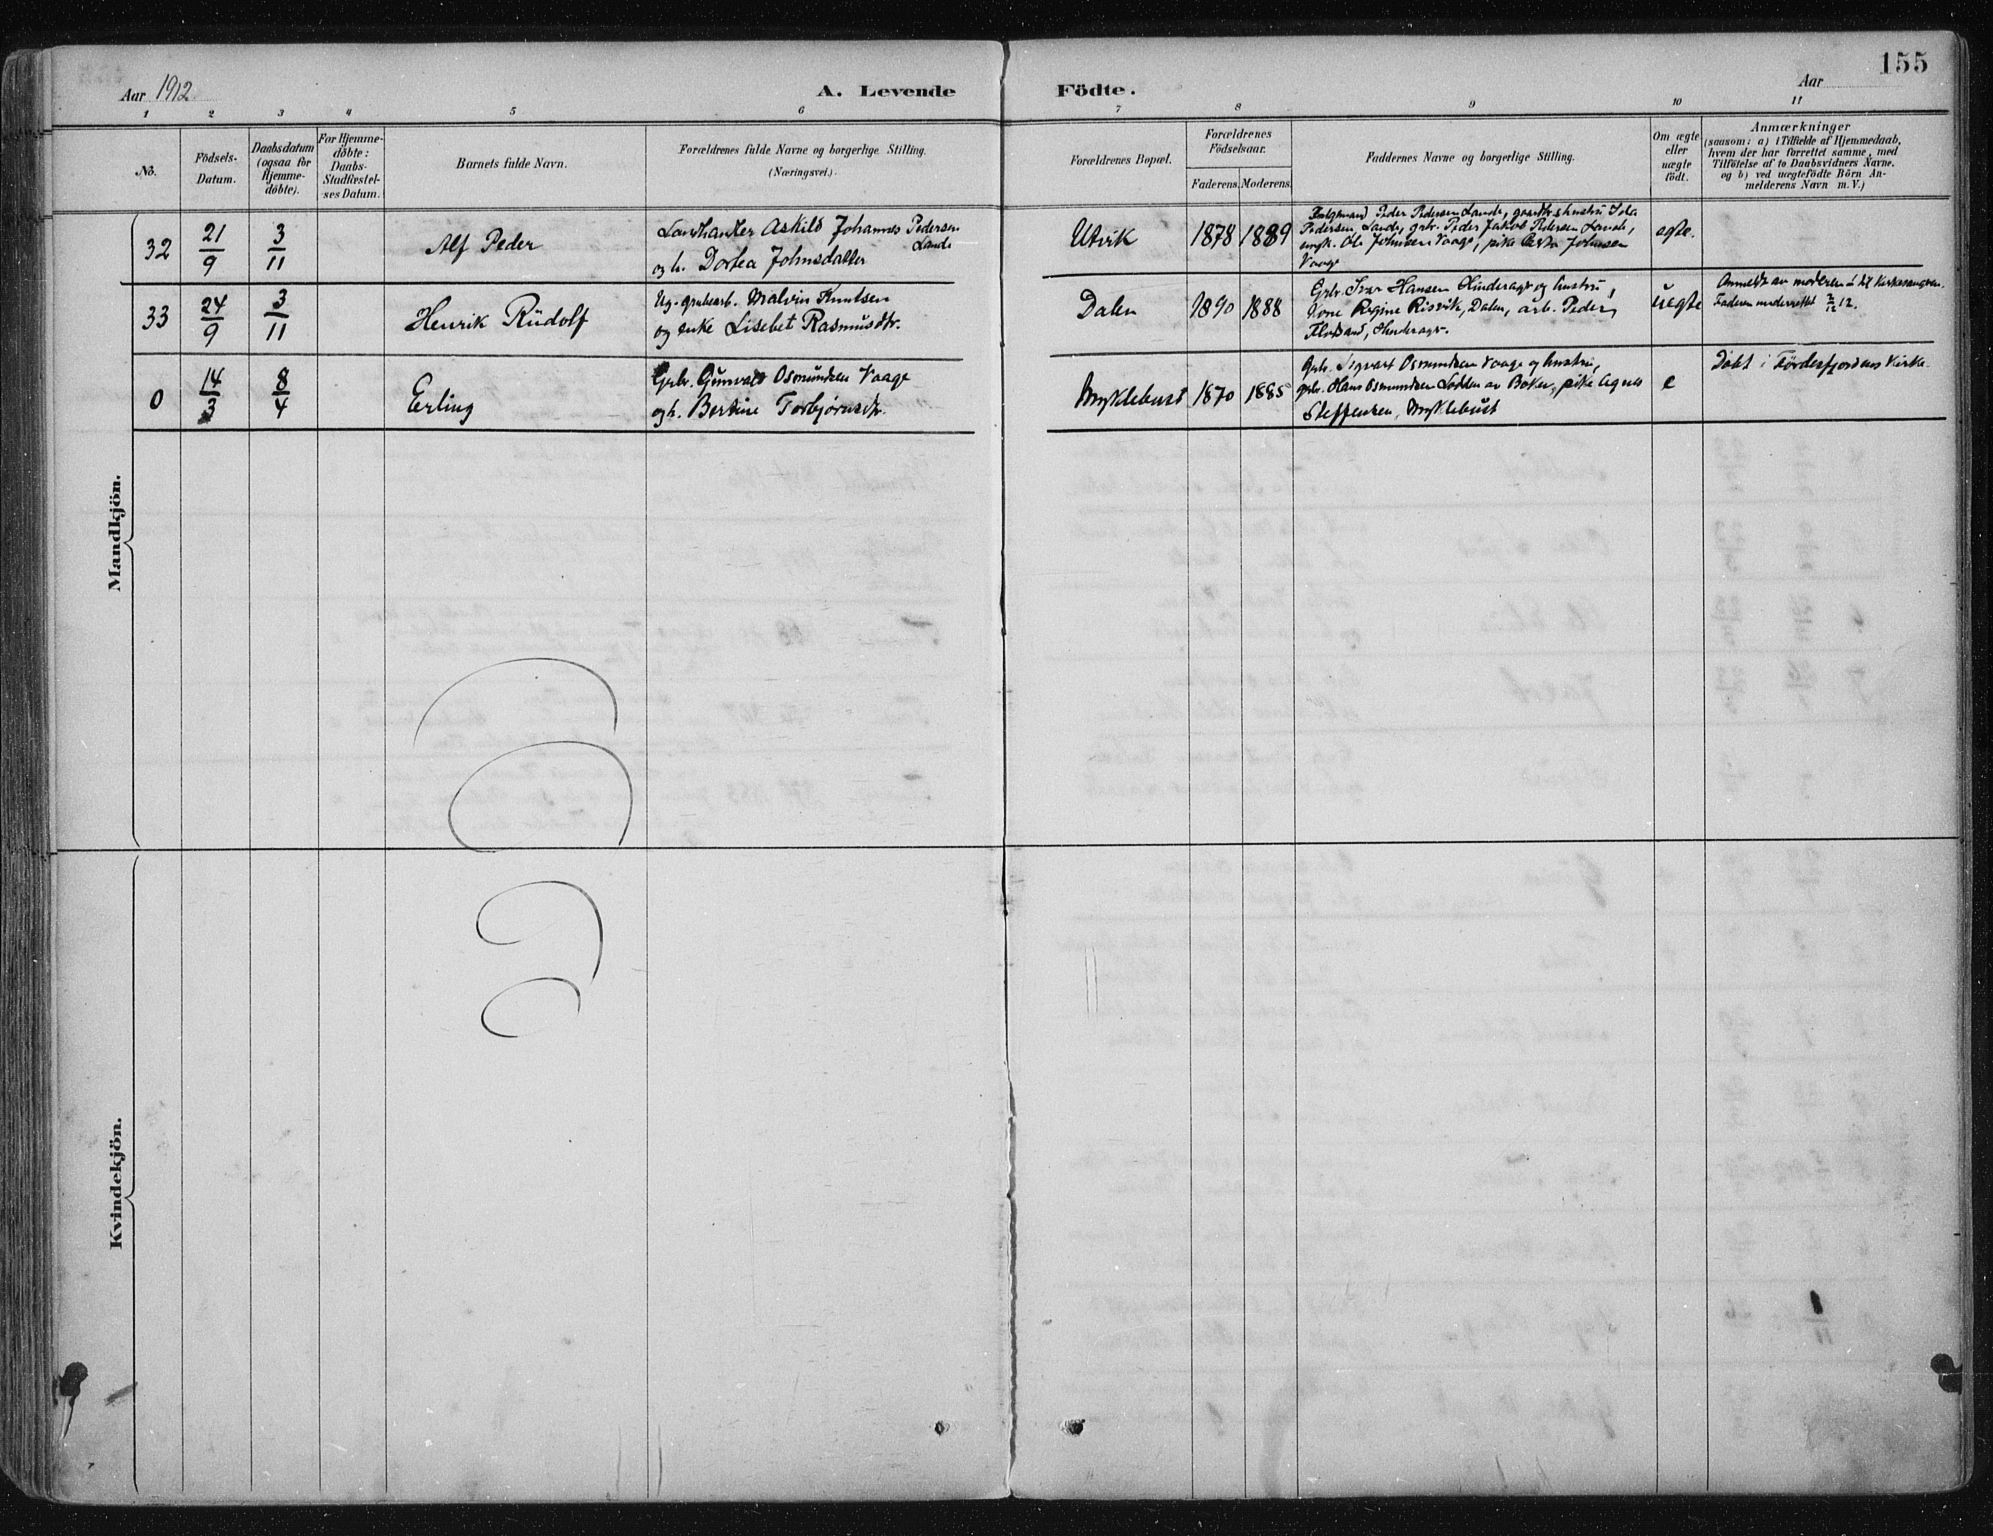 Aar 1912
A. Levende Födte.
Aar
155
1 2 3 4 5 6 7 8 9 10 11
No.
Födsels-
Datum.
Daabsdatum
(ogsaa for
Hjemme-
döbte).
For Hjemme-
döbte:
Daabs-
Stadfæstel-
ses Datum.
Barnets fulde Navn.
Forældrenes fulde Navne og borgerlige Stilling.
(Næringsvei.)
Forældrenes Bopæl.
Forældrenes
Födselsaar.
Faderens. Moderens.
Faddernes Navne og borgerlige Stilling.
Om ægte
eller
uægte
födt.
Anmærkninger
(saasom: a) i Tilfælde af Hjemmedaab,
hvem der har forrettet samme, med
Tilföielse af to Daabsvidners Navne.
og b) ved uægtefödte Börn An-
melderens Navn m. V.)
Mandkjön.
32
21/9
3/11
Alf Peder
Askild Johannes Pedersen
Lande
og h. Dortea Johnsdatter
Utvik
1878 1889
Peder Pedersen Lande,
Pedersen Lande, grb. Peder Jakob Pedersen Lande,
ungk. Ole Johnsen Vaage, pike Johnsen
Vaage
egte.
33
24/9
3/11
Henrik Rüdolf
Ug. grubearb. Malvin Knutsen
og enke Lisebet Rasmusdtr.
Dalen
1890 1888
Grb. Ivar Hansen Hinderager og hustrü,
kone Regine Risvik, Dalen, arb. Peder
Flotsand, Hinderager.
üegte
Anmeldt av moderen til Kirkesangeren.
Faderen underrettet 2/12 12.
0
14/3
8/4
Erling
Grbr. Günvald Osmündsen Vaage
og h. Bertine Torbjørnsdtr.
Myklebust
1870 1885
Grb. Sigvart Osmundsen Vaage og hustrü,
grb. Hans Osmundsen Lodden av Boken, pike Agnes
Steffensen, Myklebüst
e
Døbt i Førdesfjordens Kirke.
Kvindekjön.